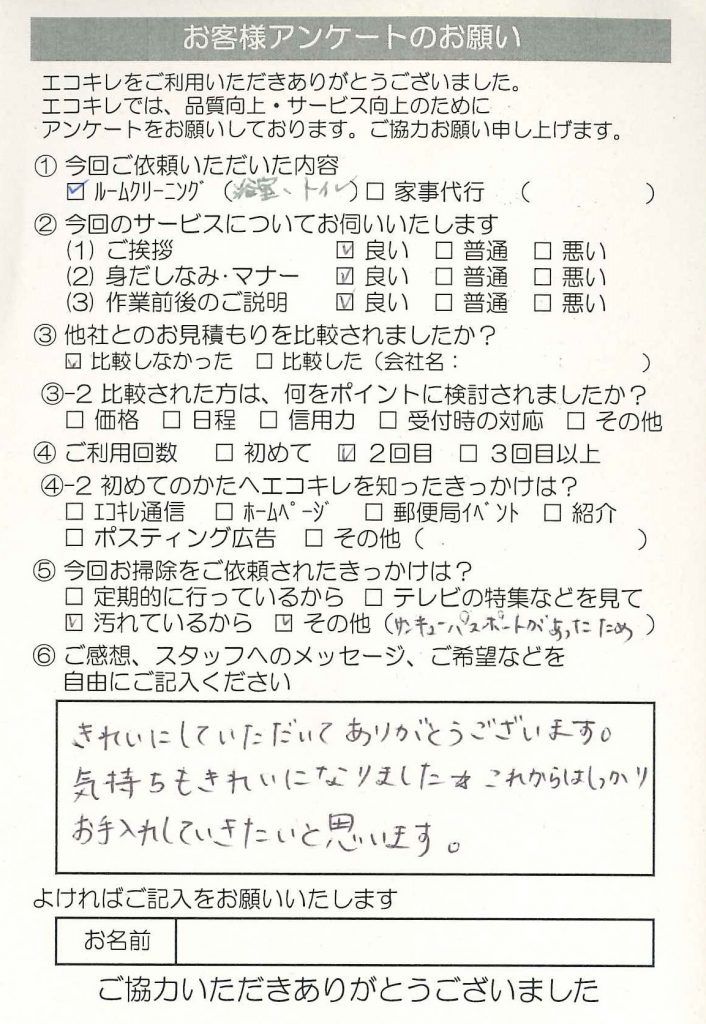 お客様アンケートのお願い
エコキレをご利用いただきありがとうございました。
エコキレでは、品質向上・サービス向上のために
アンケートをお願いしております。ご協力お願い申し上げます。
① 今回ご依頼いただいた内容
☑ ﾙｰﾑｸﾘｰﾆﾝｸﾞ (浴室、トイレ) □ 家事代行 ( )
② 今回のサービスについてお伺いいたします
(1) ご挨拶 ☑ 良い □ 普通 □ 悪い
(2) 身だしなみ・マナー ☑ 良い □ 普通 □ 悪い
(3) 作業前後のご説明 ☑ 良い □ 普通 □ 悪い
③ 他社とのお見積もりを比較されましたか？
☑ 比較しなかった □ 比較した (会社名： )
③-2 比較された方は、何をポイントに検討されましたか？
□ 価格 □ 日程 □ 信用力 □ 受付時の対応 □ その他
④ ご利用回数 □ 初めて ☑ 2回目 □ 3回目以上
④-2 初めてのかたへエコキレを知ったきっかけは？
□ ｴｺｷﾚ通信 □ ﾎｰﾑﾍﾟｰｼﾞ □ 郵便局ｲﾍﾞﾝﾄ □ 紹介
□ ポスティング広告 □ その他 ( )
⑤ 今回お掃除をご依頼されたきっかけは？
□ 定期的に行っているから □ テレビの特集などを見て
☑ 汚れているから ☑ その他 (サンキューパスポートがあったため)
⑥ ご感想、スタッフへのメッセージ、ご希望などを
自由にご記入ください
きれいにしていただいてありがとうございます。
気持ちもきれいになりました☆ これからはしっかり
お手入れしていきたいと思います。
よければご記入をお願いいたします
お名前
ご協力いただきありがとうございました